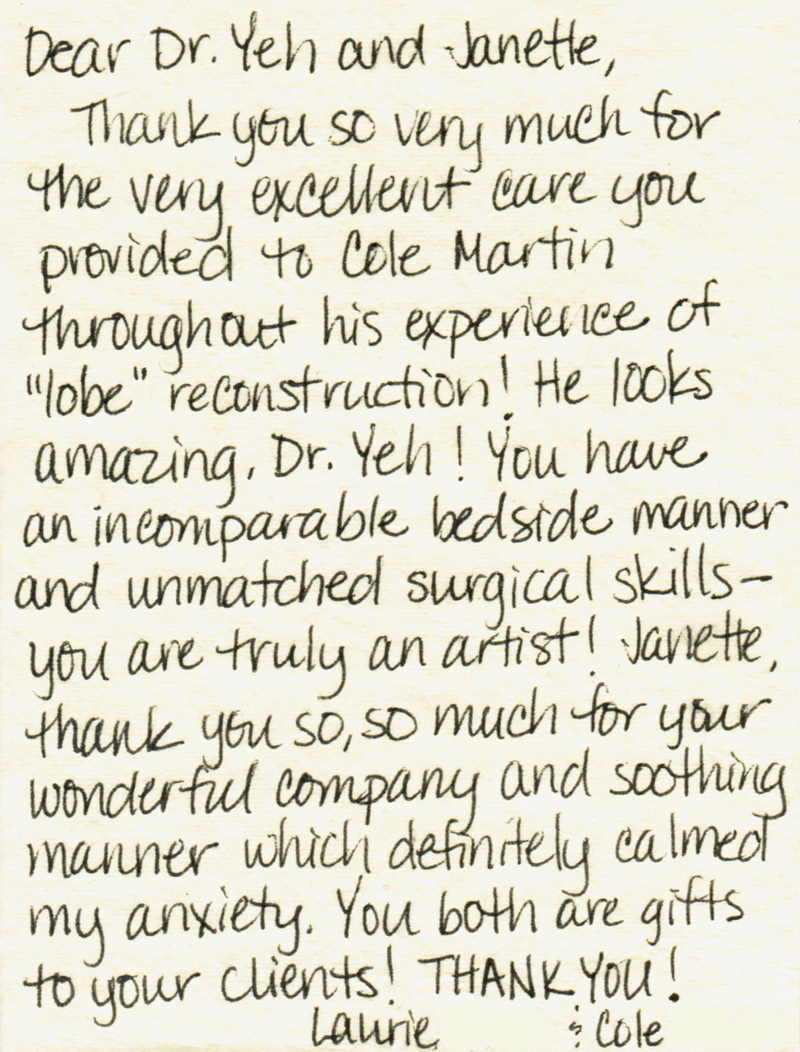 Dear Dr. Yeh and Janette,
Thank you so very much for
the very excellent care you
provided to Cole Martin
throughout his experience of
"lobe" reconstruction! He looks
amazing, Dr. Yeh! You have
an incomparable bedside manner
and unmatched surgical skills—
you are truly an artist! Janette,
thank you so, so much for your
wonderful company and soothing
manner which definitely calmed
my anxiety. You both are gifts
to your clients! THANK YOU!
Laurie & Cole